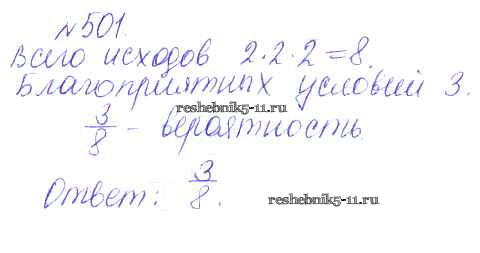 №501.
Всего исходов 2·2·2=8.
Благоприятных условий 3.
reshebnik5-11.ru
3/8 - вероятность
Ответ: 3/8.
reshebnik5-11.ru